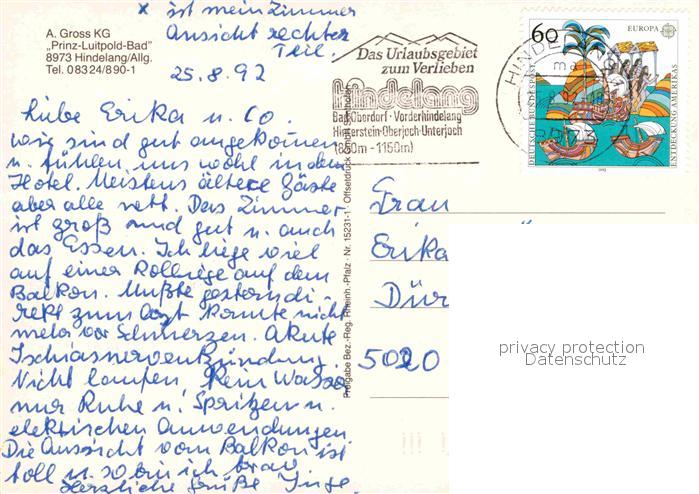 x ist mein Zimmer
Ansicht rechter
Teil.
A. Gross KG
"Prinz-Luitpold-Bad"
8973 Hindelang/Allg.
Tel. 08324/890-1
25.8.92
Liebe Erika u. Co.
wir sind gut angekommen
u. fühlen uns wohl in dem
Hotel. Meistens ältere Gäste
aber alle nett. Das Zimmer
ist groß und gut u. auch
das Essen. Ich liege viel
auf einer Rolliege auf dem
Balkon. Mußte gestern di-
rekt zum Arzt konnte nicht
mehr vor Schmerzen. Akute
Ischiasnerventzündung.
Nicht laufen, kein Wasser
nur Ruhe u. Spritzen u.
elektrischen Anwendungen.
Die Aussicht vom Balkon ist
toll u. so bin ich brav.
Herzliche Grüße Inge.
Das Urlaubsgebiet
zum Verlieben
Hindelang
Bad Oberdorf · Vorderhindelang
Hinterstein-Oberjoch-Unterjoch
(850m - 1150m)
HINDELANG
60
EUROPA
DEUTSCHE BUNDESPOST
ENTDECKUNG AMERIKAS
1992
Freigabe Bez.-Reg. Rheinh.-Pfalz · Nr. 15231-1 Offsetdruck
Frau
Erika
Dür
5020
privacy protection
Datenschutz